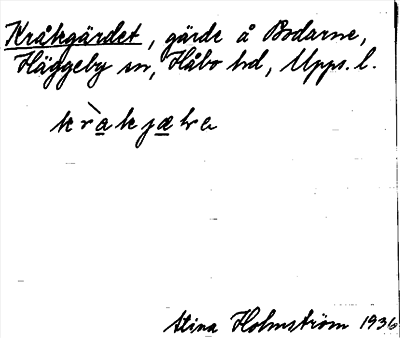 Kråkgärdet, gärde å Bodarne,
Häggeby sn, Håbo hd, Upps. l.
Stina Holmström 1936